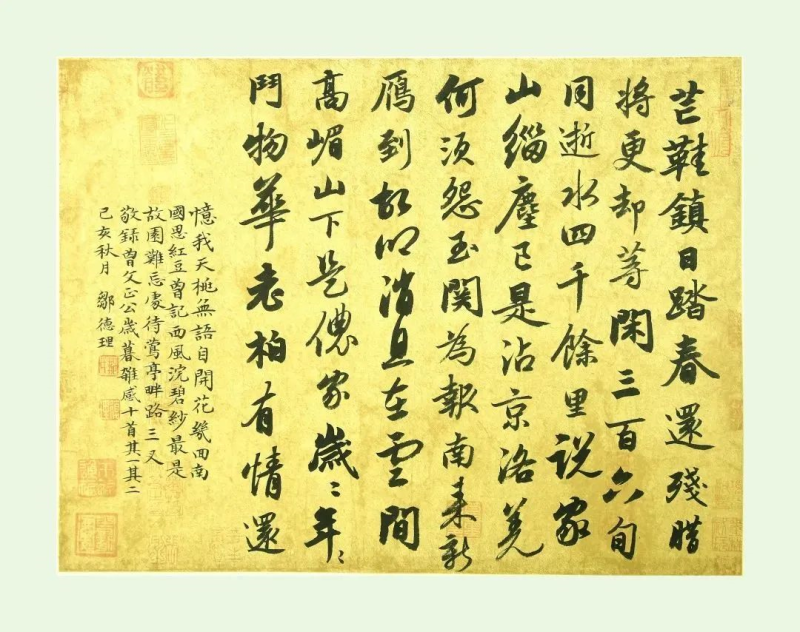 芒鞋鎮日踏春還殘腊
將更却等閑三百六旬
同逝水四千餘里説家
山緇塵已是沾京洛羌
何須怨玉関為報南来新
鴈到故鄉消息在雲間
高嵋山下是儂家歲〻年〻
鬥物華老柏有情還
憶我天桃無語自開花幾回南
國思紅豆曾記西風浣碧紗最是
故園難忘處待鶯亭畔路三叉
敬録曾文正公歲暮雜感十首其一其二
己亥秋月 鄒德理